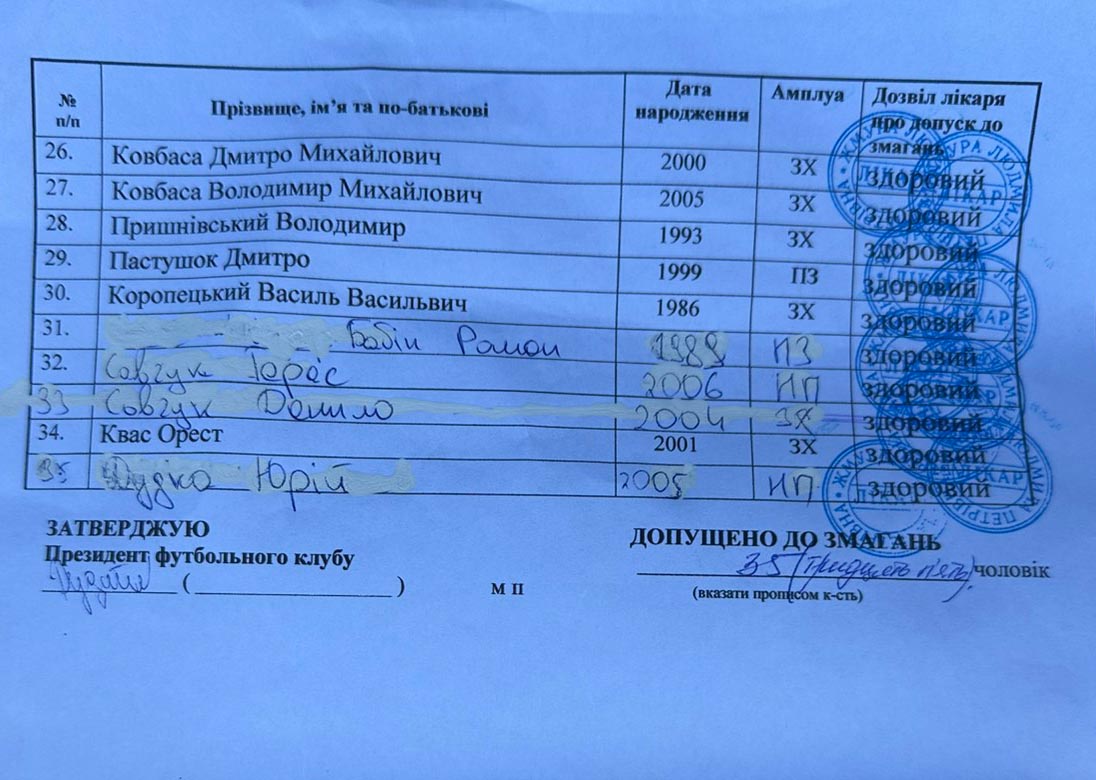 № п/п Прізвище, ім’я та по-батькові Дата народження Амплуа Дозвіл лікаря про допуск до змагань
26. Ковбаса Дмитро Михайлович 2000 ЗХ здоровий
27. Ковбаса Володимир Михайлович 2005 ЗХ здоровий
28. Пришнівський Володимир 1993 ЗХ здоровий
29. Пастушок Дмитро 1999 ПЗ здоровий
30. Коропецький Василь Васильвич 1986 ЗХ здоровий
31. Бабін Роман 1989 ПЗ здоровий
32. Савчук Тарас 2006 НП здоровий
33 Савчук Данило 2004 ЗХ здоровий
34. Квас Орест 2001 ЗХ здоровий
35 Дудка Юрій 2005 НП здоровий
ЗАТВЕРДЖУЮ
Президент футбольного клубу
( )
М П
ДОПУЩЕНО ДО ЗМАГАНЬ
35 (тридцять п'ять) чоловік
(вказати прописом к-сть)
ЖМУРА ЛЮДМИЛА ПЕТРІВНА
ЛІКАР